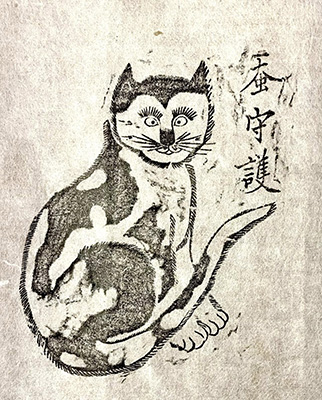 蚕守護